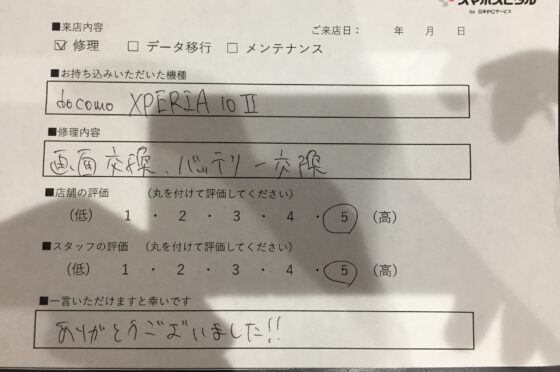 スマホスピタル
by 日本PCサービス
■来店内容
ご来店日： 年 月 日
☑ 修理 □ データ移行 □ メンテナンス
■お持ち込みいただいた機種
docomo XPERIA 10 II
■修理内容
画面交換、バッテリー交換
■店舗の評価 （丸を付けて評価してください）
（低） 1 ・ 2 ・ 3 ・ 4 ・ 5 （高）
■スタッフの評価 （丸を付けて評価してください）
（低） 1 ・ 2 ・ 3 ・ 4 ・ 5 （高）
■一言いただけますと幸いです
ありがとうございました!!